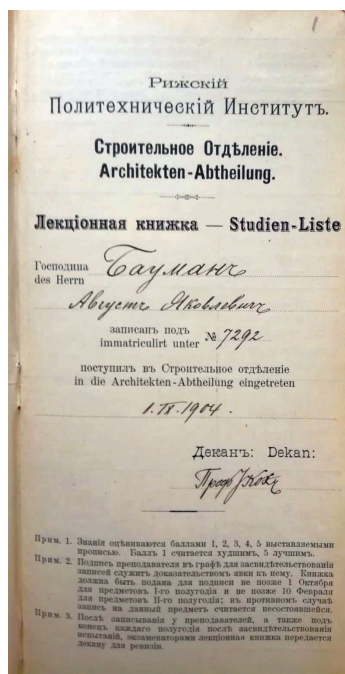 1
Рижскій
Политехническій Институтъ.
Строительное Отдѣленіе.
Architekten-Abtheilung.
Лекціонная книжка — Studien-Liste
Господина
des Herrn
Бауманъ
Августъ Яковлевичъ
записанъ подъ
immatriculirt unter
№ 7292
поступилъ въ Строительное отдѣленіе
in die Architekten-Abtheilung eingetreten
1.IX.1904.
Деканъ: Dekan:
Проф
Прим. 1. Знанія оцѣниваются баллами 1, 2, 3, 4, 5 выставляемыми
прописью. Баллъ 1 считается худшимъ, 5 лучшимъ.
Прим. 2. Подпись преподавателя въ графѣ для засвидѣтельствованія
записей служитъ доказательствомъ явки къ нему. Книжка
должна быть подана для подписи не позже 1 Октября
для предметовъ I-го полугодія и не позже 10 Февраля
для предметовъ II-го полугодія; въ противномъ случаѣ
запись на данный предметъ считается несостоявшейся.
Прим. 3. Послѣ записыванія у преподавателей, а также подъ
конецъ каждаго полугодія послѣ засвидѣтельствованія
испытаній, экзаменаторами лекціонная книжка передается
декану для ревизіи.